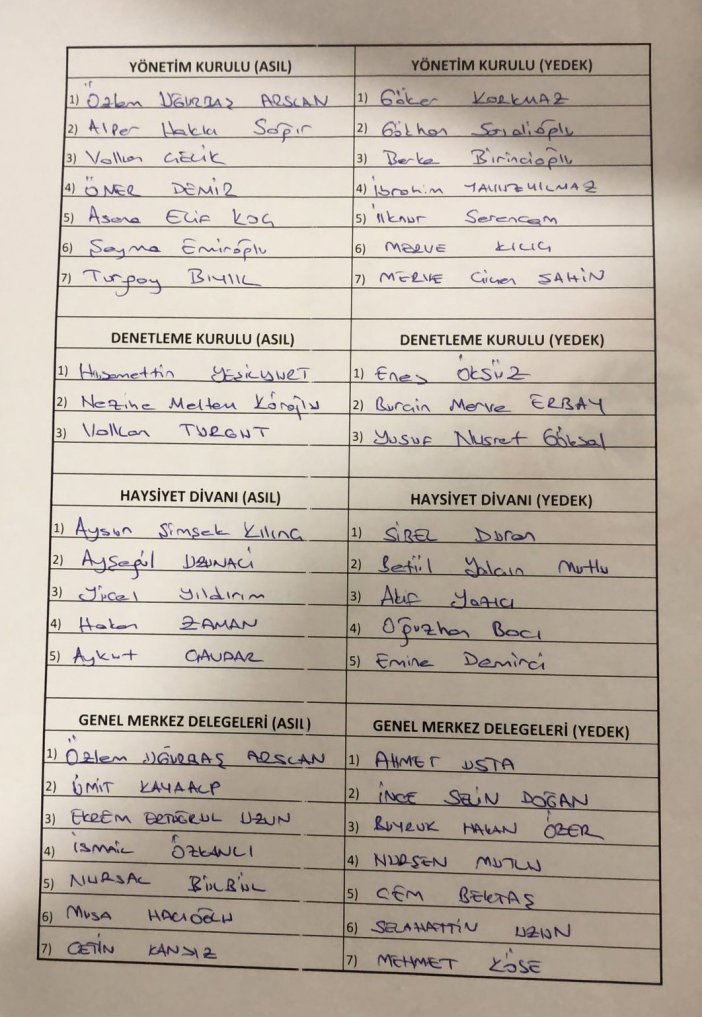 YÖNETİM KURULU (ASIL)
1) Özlem UĞURBAŞ ARSLAN
2) Alper Hakkı Sağır
3) Volkan ÇELİK
4) ÖNER DEMİR
5) Asena Elif KOÇ
6) Şeyma Emiroğlu
7) Turgay BIYIK
YÖNETİM KURULU (YEDEK)
1) Göker KORKMAZ
2) Gökhan
3) Berke Birincioğlu
4) İbrahim YAVUZYILMAZ
5) İlknur Serencam
6) MERVE KILIÇ
7) MERVE ŞAHİN
DENETLEME KURULU (ASIL)
1) Hüsamettin YEŞİLYURT
2) Nezihe Meltem Köroğlu
3) Volkan TURGUT
DENETLEME KURULU (YEDEK)
1) Enes ÖKSÜZ
2) Burçin Merve ERBAY
3) Yusuf Nusret Göksal
HAYSİYET DİVANI (ASIL)
1) Aysun Şimşek Kılınç
2) Ayşegül UZUNALİ
3) Yücel Yıldırım
4) Hakan ZAMAN
5) Aykut ÇAVDAR
HAYSİYET DİVANI (YEDEK)
1) SİBEL Duran
2) Betül Yalçın Mutlu
3) Akif Yazıcı
4) Oğuzhan Bacı
5) Emine Demirci
GENEL MERKEZ DELEGELERİ (ASIL)
1) Özlem UĞURBAŞ ARSLAN
2) ÜMİT KAYAALP
3) EKREM ERTUĞRUL UZUN
4) İSMAİL ÖZKANLI
5) NURSAL BÜLBÜL
6) MUSA HACIOĞLU
7) ÇETİN KANSIZ
GENEL MERKEZ DELEGELERİ (YEDEK)
1) AHMET USTA
2) İNCE SELİN DOĞAN
3) BUYRUK HAKAN ÖZER
4) NURŞEN MUTLU
5) CEM BEKTAŞ
6) SELAHATTİN UZUN
7) MEHMET KÖSE